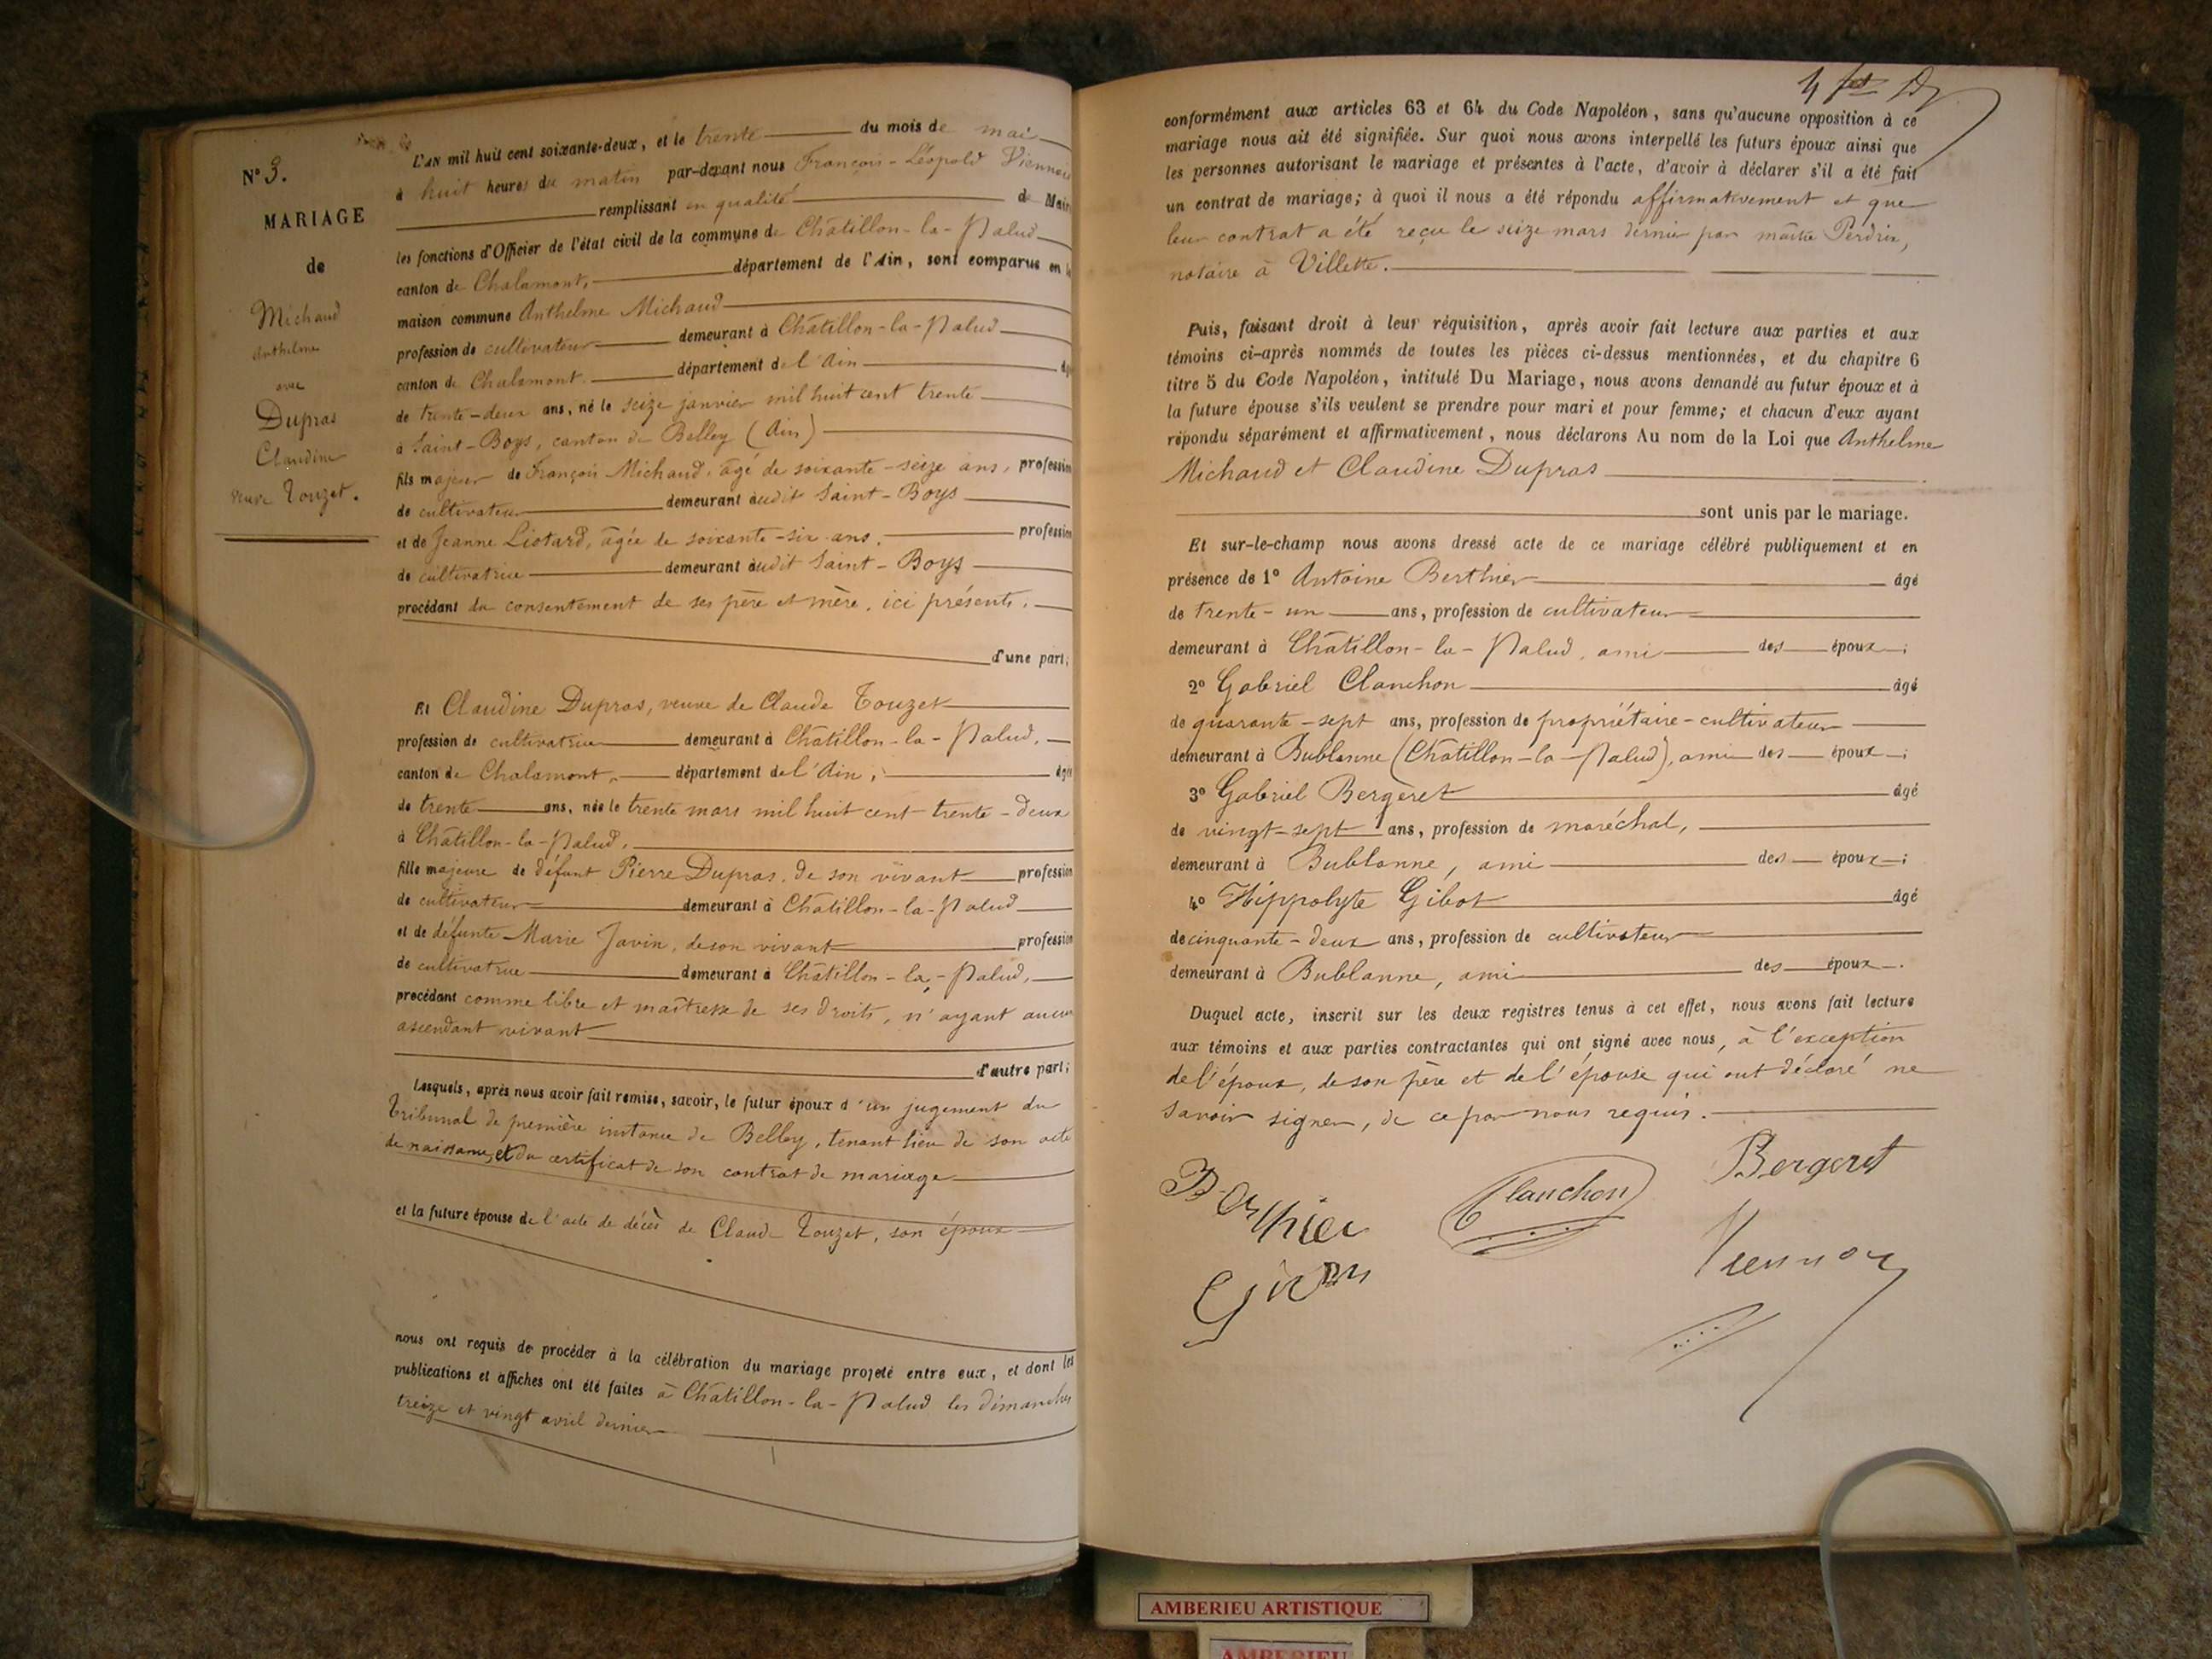 N° 3.
MARIAGE
de
Michaud
Anthelme
avec
Dupras
Claudine
veuve Touzet.
L'AN mil huit cent soixante-deux, et le trente du mois de mai
à huit heures du matin par-devant nous François-Léopold Viennois
remplissant en qualité de Maire
les fonctions d'Officier de l'état civil de la commune de Châtillon-la-Palud
canton de Chalamont, département de l'Ain, sont comparus en la
maison commune Anthelme Michaud
profession de cultivateur demeurant à Châtillon-la-Palud
canton de Chalamont. département de l'Ain âgé
de trente-deux ans, né le seize janvier mil huit cent trente
à Saint-Boys, canton de Belley (Ain)
fils majeur de François Michaud, âgé de soixante-seize ans, profession
de cultivateur demeurant audit Saint-Boys
et de Jeanne Liotard, âgée de soixante-six ans, profession
de cultivatrice demeurant audit Saint-Boys
procédant du consentement de ses père et mère, ici présents.
d'une part;
Et Claudine Dupras, veuve de Claude Touzet
profession de cultivatrice demeurant à Châtillon-la-Palud,
canton de Chalamont, département de l'Ain, âgée
de trente ans, née le trente mars mil huit cent trente-deux
à Châtillon-la-Palud,
fille majeure de défunt Pierre Dupras, de son vivant profession
de cultivateur demeurant à Châtillon-la-Palud
et de défunte Marie Javin, de son vivant profession
de cultivatrice demeurant à Châtillon-la-Palud,
procédant comme libre et maîtresse de ses droits, n'ayant aucun
ascendant vivant
d'autre part;
Lesquels, après nous avoir fait remise, savoir, le futur époux d'un jugement du
Tribunal de première instance de Belley, tenant lieu de son acte
de naissance, et du certificat de son contrat de mariage
et la future épouse de l'acte de décès de Claude Touzet, son époux
nous ont requis de procéder à la célébration du mariage projeté entre eux, et dont les
publications et affiches ont été faites à Châtillon-la-Palud les dimanches
treize et vingt avril dernier
conformément aux articles 63 et 64 du Code Napoléon, sans qu'aucune opposition à ce
mariage nous ait été signifiée. Sur quoi nous avons interpellé les futurs époux ainsi que
les personnes autorisant le mariage et présentes à l'acte, d'avoir à déclarer s'il a été fait
un contrat de mariage; à quoi il nous a été répondu affirmativement et que
leur contrat a été reçu le seize mars dernier par maître Perdrix,
notaire à Villette.
Puis, faisant droit à leur réquisition, après avoir fait lecture aux parties et aux
témoins ci-après nommés de toutes les pièces ci-dessus mentionnées, et du chapitre 6
titre 5 du Code Napoléon, intitulé Du Mariage, nous avons demandé au futur époux et à
la future épouse s'ils veulent se prendre pour mari et pour femme; et chacun d'eux ayant
répondu séparément et affirmativement, nous déclarons Au nom de la Loi que Anthelme
Michaud et Claudine Dupras
sont unis par le mariage.
Et sur-le-champ nous avons dressé acte de ce mariage célébré publiquement et en
présence de 1° Antoine Berthier âgé
de trente-un ans, profession de cultivateur
demeurant à Châtillon-la-Palud, ami des époux;
2° Gabriel Clanchon âgé
de quarante-sept ans, profession de propriétaire-cultivateur
demeurant à Bublanne (Châtillon-la-Palud), ami des époux;
3° Gabriel Bergeret âgé
de vingt-sept ans, profession de maréchal,
demeurant à Bublanne, ami des époux;
4° Hippolyte Gibot âgé
de cinquante-deux ans, profession de cultivateur
demeurant à Bublanne, ami des époux.
Duquel acte, inscrit sur les deux registres tenus à cet effet, nous avons fait lecture
aux témoins et aux parties contractantes qui ont signé avec nous, à l'exception
de l'époux, de son père et de l'épouse qui ont déclaré ne
savoir signer, de ce par nous requis.
Berthier
Clanchon
Bergeret
Viennois
AMBERIEU ARTISTIQUE
AMBERIEU